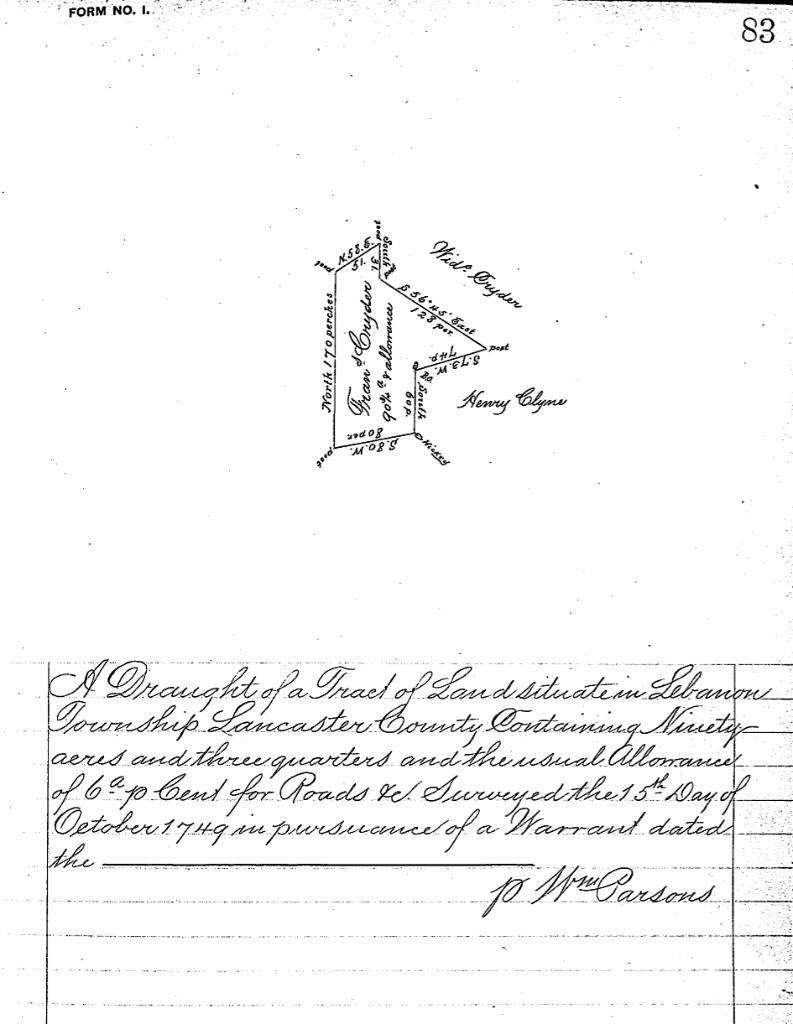 FORM NO. 1.
83
post
N. 53. E.
51.
post
South
31.
Wid.ʳ Cryder
S 56° 45' East
123 per.
post
S. 73. W.
74 p.
North 170 perches
Fran.ˢ Cryder
90¾ ᵃ & allowance
South
60 p.
Henry Clyne
Hickey
S. 80. W.
80 per.
post
A Draught of a Tract of Land situate in Lebanon
Township Lancaster County Containing Ninety
acres and three quarters and the usual Allowance
of 6ᵃ p Cent for Roads &c. Surveyed the 15ᵗʰ Day of
October 1749 in pursuance of a Warrant dated
the
p Wm Parsons